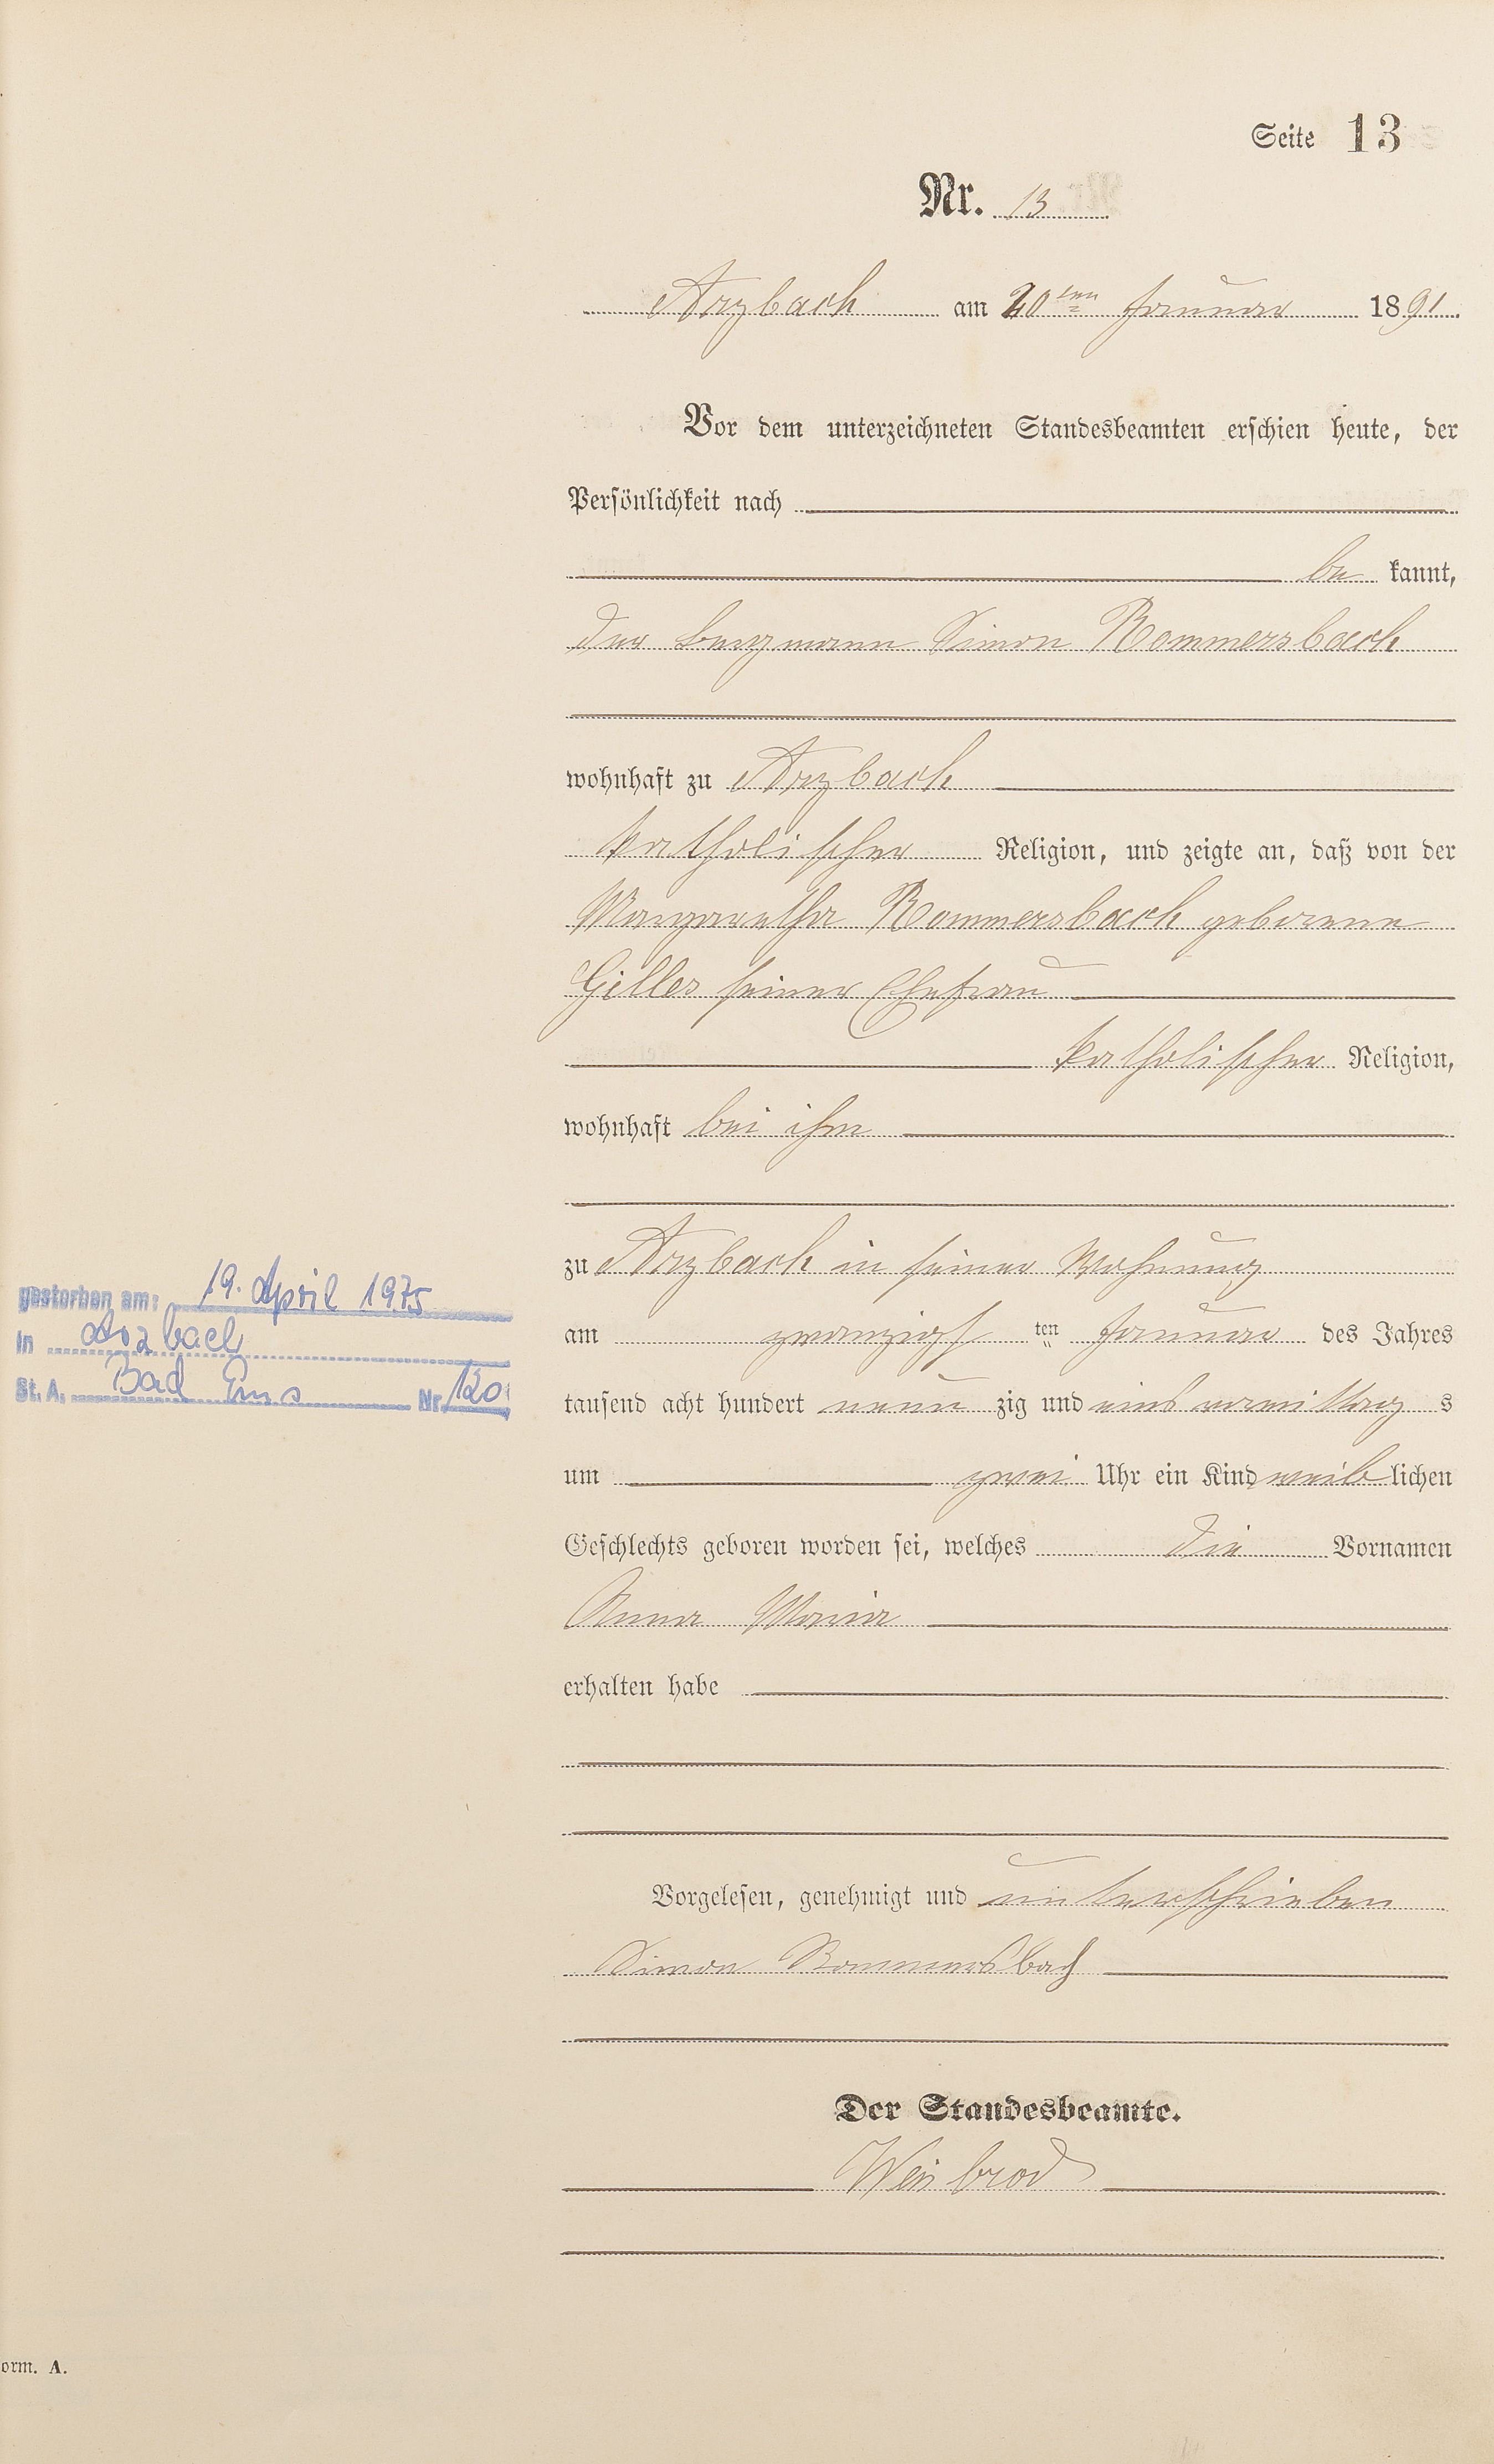 Seite 13
Nr. 13
Arzbach am 20ten Januar 1891.
Vor dem unterzeichneten Standesbeamten erschien heute, der
Persönlichkeit nach
be kannt,
der Bergmann Simon Rommersbach
wohnhaft zu Arzbach
katholischer Religion, und zeigte an, daß von der
Margaretha Rommersbach geborene
Gilles seiner Ehefrau
katholischer Religion,
wohnhaft bei ihm
zu Arzbach in seiner Wohnung
am zwanzigs ten Januar des Jahres
tausend acht hundert neun zig und eins vormittag s
um zwei Uhr ein Kind weib lichen
Geschlechts geboren worden sei, welches die Vornamen
Anna Maria
erhalten habe
Vorgelesen, genehmigt und unterschrieben
Simon Rommersbach
Der Standesbeamte.
Weisbrod
gestorben am: 19. April 1975
in Arzbach
St. A. Bad Ems Nr. 120
orm. A.